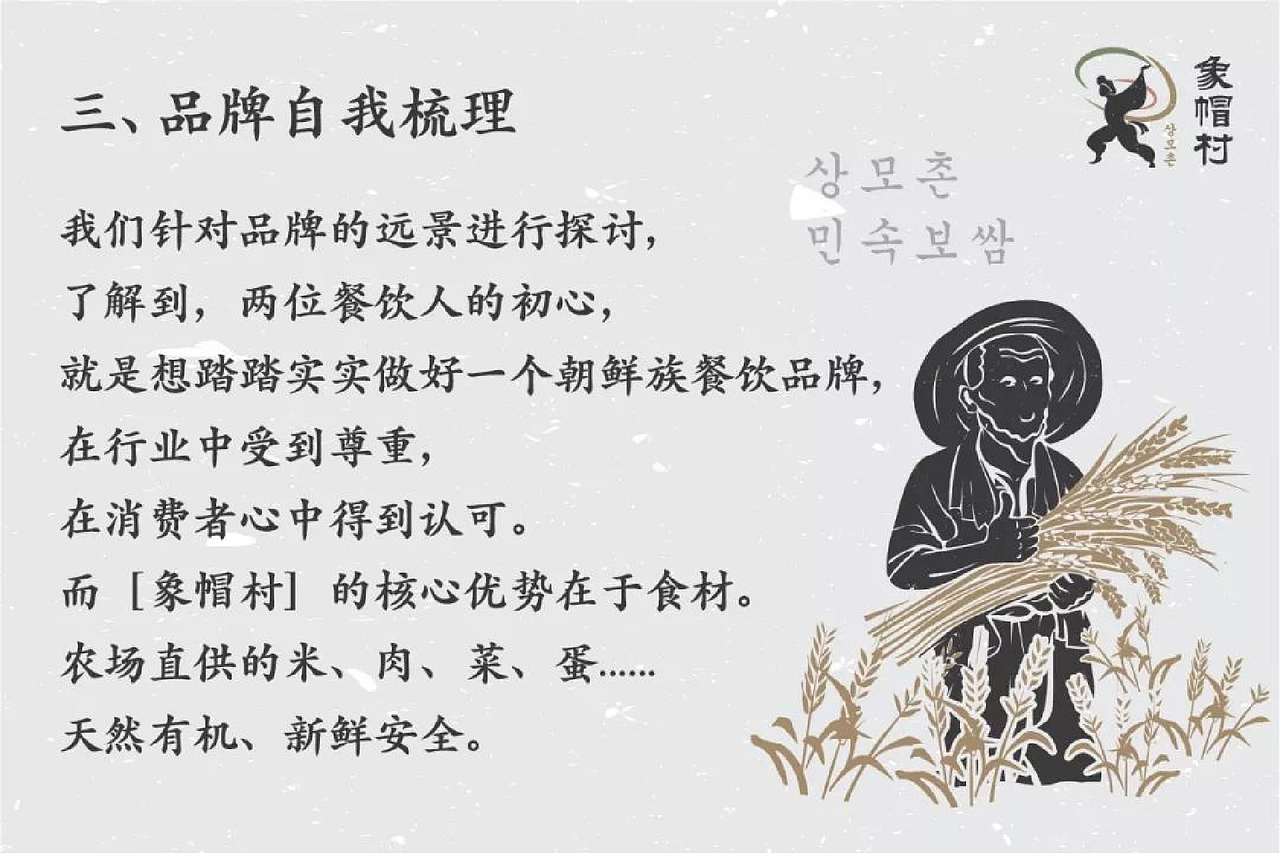 三、品牌自我梳理
象帽村
상모촌
상모촌
민속보쌈
我们针对品牌的远景进行探讨，
了解到，两位餐饮人的初心，
就是想踏踏实实做好一个朝鲜族餐饮品牌，
在行业中受到尊重，
在消费者心中得到认可。
而［象帽村］的核心优势在于食材。
农场直供的米、肉、菜、蛋......
天然有机、新鲜安全。